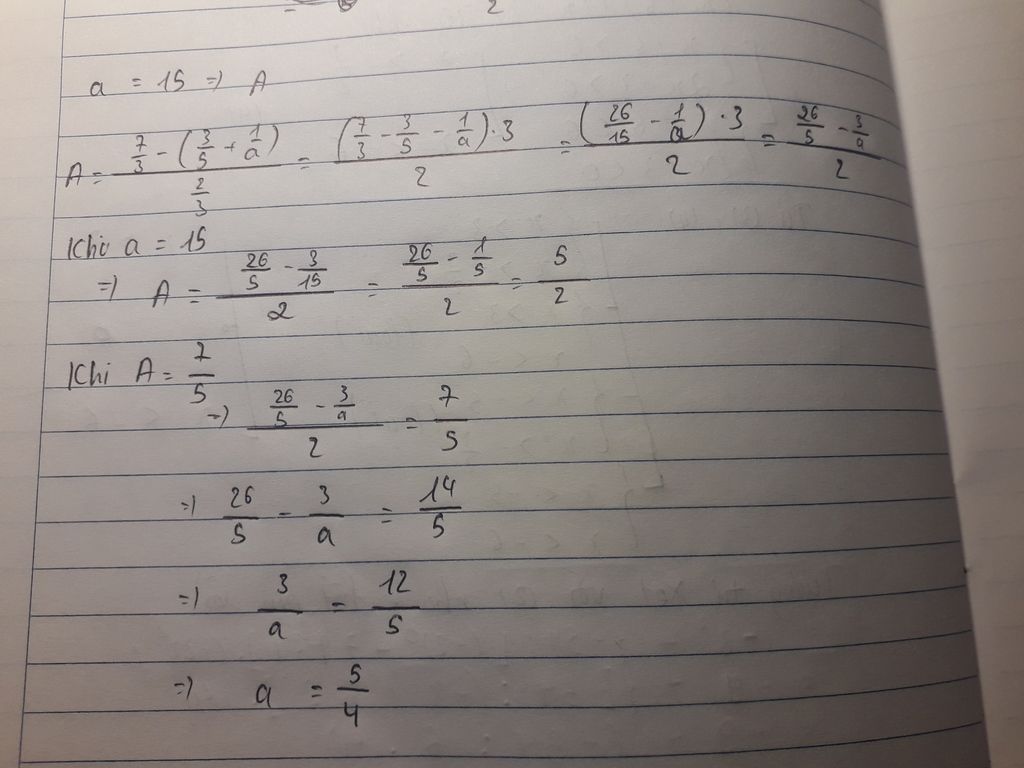 2
a = 15 => A
A = (7/3 - (3/5 + 1/a)) / (2/3) = ((7/3 - 3/5 - 1/a) · 3) / 2 = ((26/15 - 1/a) · 3) / 2 = (26/5 - 3/a) / 2
Khi a = 15
=> A = (26/5 - 3/15) / 2 = (26/5 - 1/5) / 2 = 5/2
Khi A = 7/5
=> (26/5 - 3/a) / 2 = 7/5
=> 26/5 - 3/a = 14/5
=> 3/a = 12/5
=> a = 5/4